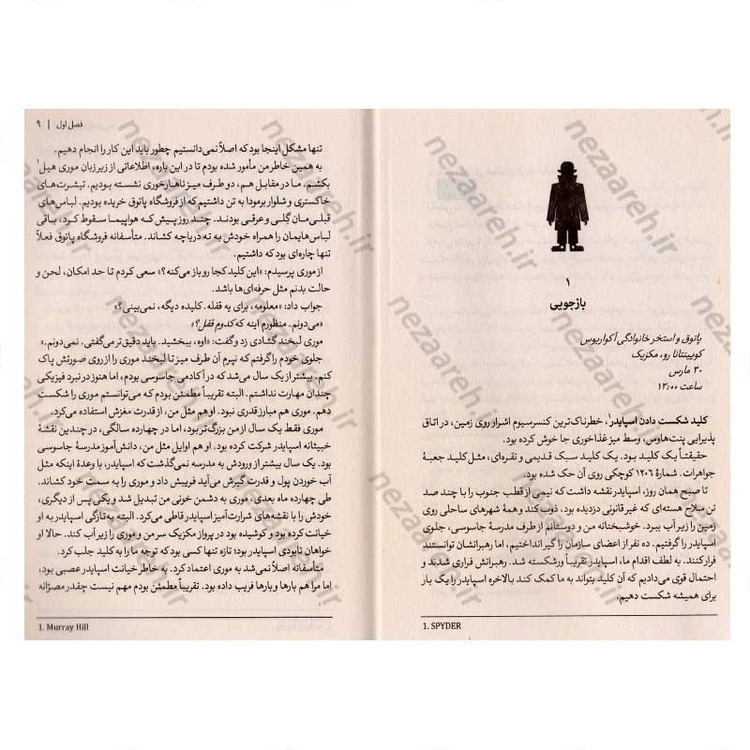 ۱
بازجویی
پاتوق و استخر خانوادگی آکواریوس
کویینتانا رو، مکزیک
۳۰ مارس
ساعت ۱۲:۰۰
کلید شکست دادن اسپایدر¹، خطرناک‌ترین کنسرسیوم اشرار روی زمین، در اتاق
پذیرایی پنت‌هاوس، وسط میز غذاخوری جا خوش کرده بود.
حقیقتاً یک کلید بود. یک کلید سبک قدیمی و نقره‌ای، مثل کلید جعبهٔ
جواهرات. شمارهٔ ۱۲۰۶ کوچکی روی آن حک شده بود.
تا صبح همان روز، اسپایدر نقشه داشت که نیمی از قطب جنوب را با چند صد
تن سلاح هسته‌ای که غیرقانونی دزدیده بود، ذوب کند و همهٔ شهرهای ساحلی روی
زمین را زیر آب ببرد. خوشبختانه من و دوستانم از طرف مدرسهٔ جاسوسی، جلوی
اسپایدر را گرفتیم. ده نفر از اعضای سازمان را گیر انداختیم، اما رهبرانشان توانستند
فرار کنند. به لطف اقدام ما، اسپایدر تقریباً ورشکسته شد. رهبرانش فراری شدند و
احتمال قوی می‌دادیم که آن کلید بتواند به ما کمک کند بالاخره اسپایدر را یک بار
برای همیشه شکست دهیم.
1. SPYDER
فصل اول | ۹
تنها مشکل اینجا بود که اصلاً نمی‌دانستیم چطور باید این کار را انجام دهیم.
به همین خاطر من مأمور شده بودم تا در این باره، اطلاعاتی از زیر زبان موری هیل¹
بکشم. ما در مقابل هم، دو طرف میز ناهارخوری نشسته بودیم. تیشرت‌های
خاکستری و شلوار برمودا به تن داشتیم که از فروشگاه پاتوق خریده بودیم. لباس‌های
قبلی‌مان گِلی و عرقی بودند. چند روز پیش که هواپیما سقوط کرد، باقی
لباس‌هایمان را همراه خودش به ته دریاچه کشاند. متأسفانه فروشگاه پاتوق فعلاً
تنها چاره‌ای بود که داشتیم.
از موری پرسیدم: «این کلید کجا رو باز می‌کنه؟» سعی کردم تا حد امکان، لحن و
حالت بدنم مثل حرفه‌ای‌ها باشد.
جواب داد: «معلومه، برای یه قفله. کلیده دیگه، نمی‌بینی؟»
«می‌دونم. منظورم اینه که کدوم قفل؟»
موری لبخند گشادی زد و گفت: «اوه، ببخشید. باید دقیق‌تر می‌گفتی. نمی‌دونم.»
جلوی خودم را گرفتم که نپرم آن طرف میز تا لبخند موری را از روی صورتش پاک
کنم. بیشتر از یک سال می‌شد که در آکادمی جاسوسی بودم، اما هنوز در نبرد فیزیکی
چندان مهارت نداشتم. البته تقریباً مطمئن بودم که می‌توانستم موری را شکست
دهم. موری هم مبارز قدری نبود. او هم مثل من، از قدرت مغزش استفاده می‌کرد.
موری فقط یک سال از من بزرگ‌تر بود، اما در چهارده سالگی، در چندین نقشهٔ
خبیثانه اسپایدر شرکت کرده بود. او هم اوایل مثل من، دانش‌آموز مدرسهٔ جاسوسی
بود. یک سال بیشتر از ورودش به مدرسه نمی‌گذشت که اسپایدر، با وعدهٔ اینکه مثل
آب خوردن پول و قدرت گیرش می‌آید فریبش داد و موری را به سمت خود کشاند.
طی چهارده ماه بعدی، موری به دشمن خونی من تبدیل شد و یکی پس از دیگری،
خودش را با نقشه‌های شرارت‌آمیز اسپایدر قاطی می‌کرد. البته به تازگی اسپایدر به او
خیانت کرده بود و کوشیده بود در پرواز مکزیک سر من و موری را زیر آب کند. حالا او
خواهان نابودی اسپایدر بود؛ تازه تنها کسی بود که توجه ما را به کلید جلب کرد.
متأسفانه اصلاً نمی‌شد به موری اعتماد کرد. به خاطر خیانت اسپایدر عصبی بود،
اما مرا هم بارها و بارها فریب داده بود. تقریباً مطمئن بودم مهم نیست چقدر مصرّانه
1. Murray Hill
nezaareh.ir
nezaareh.ir
nezaareh.ir
nezaareh.ir
nezaareh.ir
nezaareh.ir